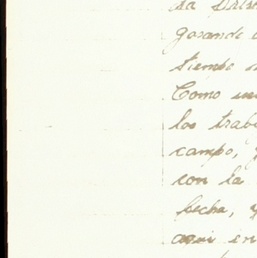 la
gozando
tiempo
Como
los trab
campo, y
con la
fecha, y
aqui en